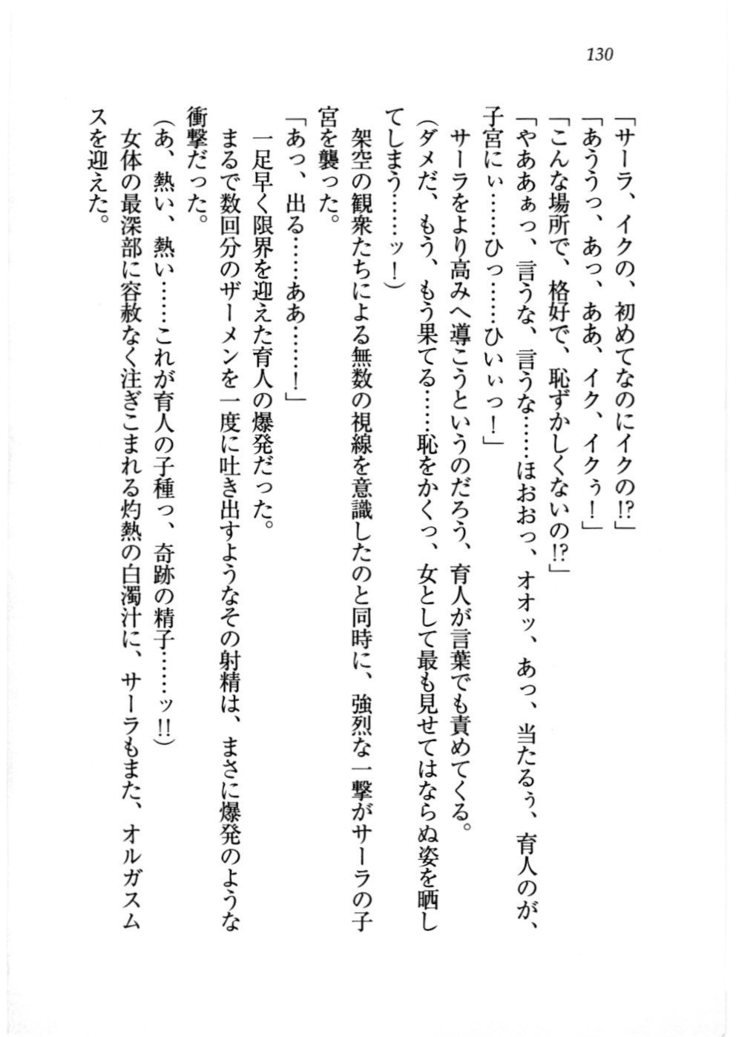 130
「サーラ、イクの、初めてなのにイクの!?」
「あううっ、あっ、ああ、イク、イクぅ！」
「こんな場所で、格好で、恥ずかしくないの!?」
「やああぁっ、言うな、言うな……ほおおっ、オオッ、あっ、当たるぅ、育人のが、
子宮にぃ……ひっ……ひいぃっ！」
サーラをより高みへ導こうというのだろう、育人が言葉でも責めてくる。
（ダメだ、もう、もう果てる……恥をかくっ、女として最も見せてはならぬ姿を晒し
てしまう……ッ！）
架空の観衆たちによる無数の視線を意識したのと同時に、強烈な一撃がサーラの子
宮を襲った。
「あっ、出る……ああ……！」
一足早く限界を迎えた育人の爆発だった。
まるで数回分のザーメンを一度に吐き出すようなその射精は、まさに爆発のような
衝撃だった。
（あ、熱い、熱い……これが育人の子種っ、奇跡の精子……ッ!!）
女体の最深部に容赦なく注ぎこまれる灼熱の白濁汁に、サーラもまた、オルガスム
スを迎えた。